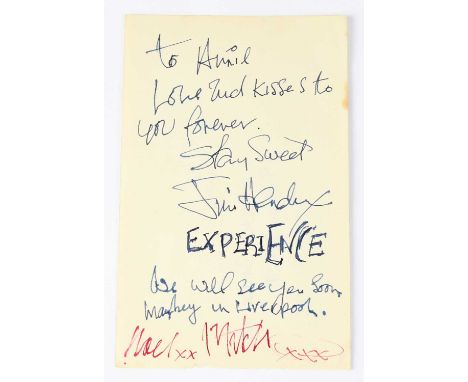 to Annie
Love and kisses to
you forever.
Stay Sweet
Jimi Hendrix
EXPERIENCE
We will see you soon
maybey in Liverpool.
Noel xx Mitch xxx